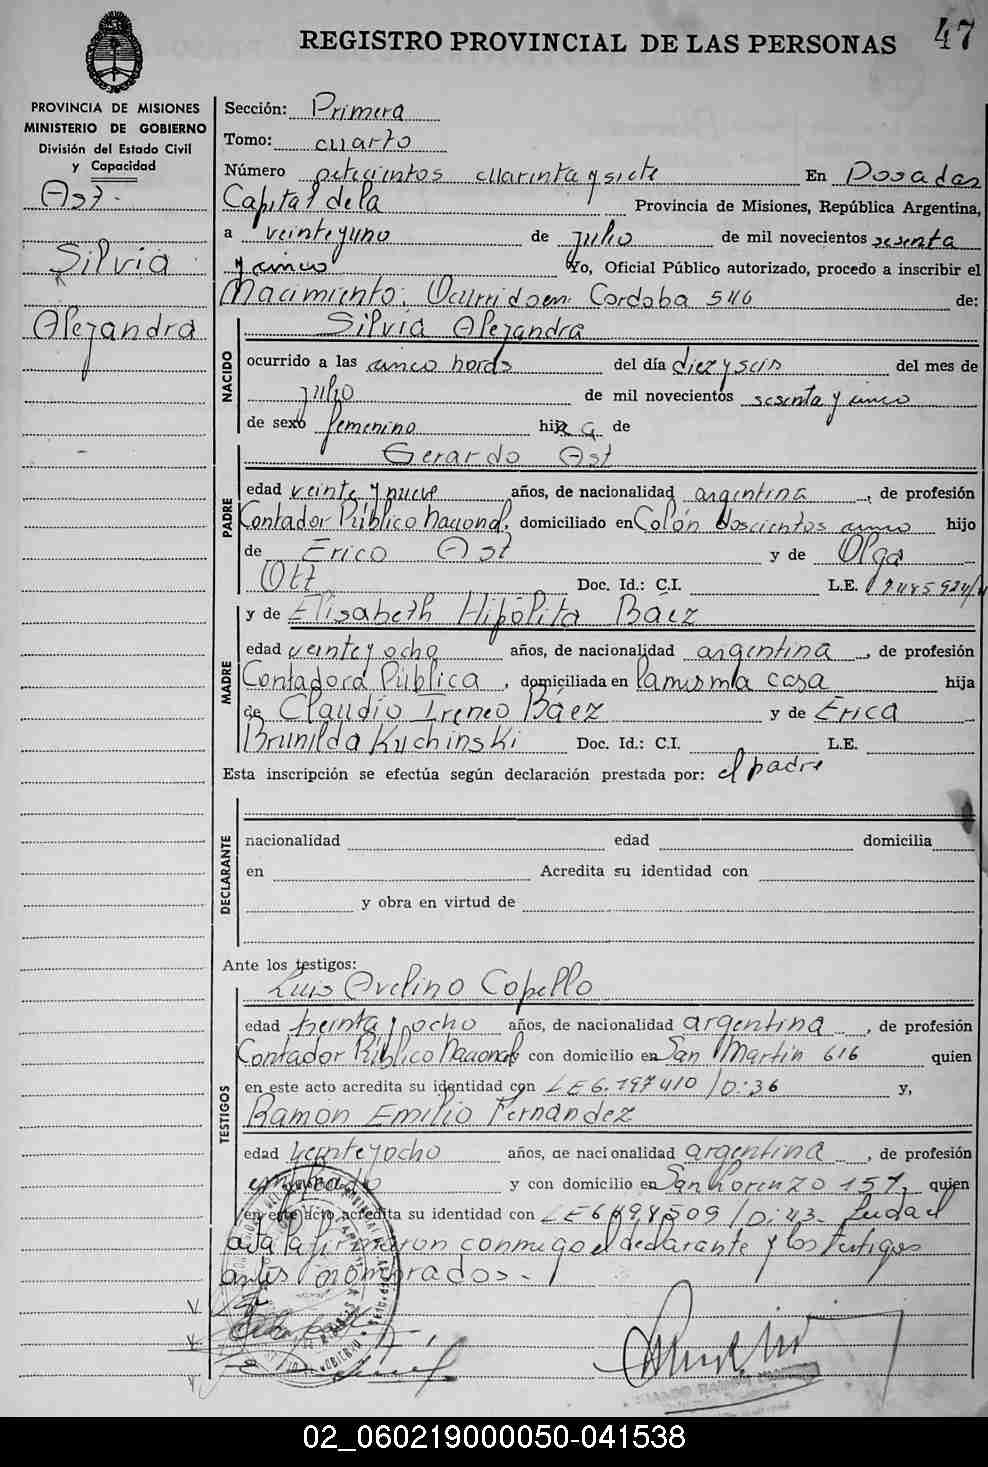 REGISTRO PROVINCIAL DE LAS PERSONAS
47
PROVINCIA DE MISIONES
MINISTERIO DE GOBIERNO
División del Estado Civil
y Capacidad
Ast.-
Silvia
Alejandra
Sección: Primera
Tomo: cuarto
Número setecientos cuarenta y siete En Posadas
Capital de la Provincia de Misiones, República Argentina,
a veinteyuno de julio de mil novecientos sesenta
y cinco Yo, Oficial Público autorizado, procedo a inscribir el
Nacimiento. Ocurrido en: Cordoba 546 de:
Silvia Alejandra
NACIDO
ocurrido a las cinco horas del día diez y seis del mes de
julio de mil novecientos sesenta y cinco
de sexo femenino hija de
Gerardo Ast
PADRE
edad veinte y nueve años, de nacionalidad argentina, de profesión
Contador Público Nacional, domiciliado en Colón doscientos cinco hijo
de Erico Ast y de Olga
Ott Doc. Id.: C.I. L.E.
y de Elisabeth Hipólita Báez
MADRE
edad veinte y ocho años, de nacionalidad argentina, de profesión
Contadora Pública, domiciliada en la misma casa hija
de Claudio Ireneo Báez y de Erica
Brunilda Kuchinski Doc. Id.: C.I. L.E.
Esta inscripción se efectúa según declaración prestada por: el padre
DECLARANTE
nacionalidad edad domicilia
en Acredita su identidad con
y obra en virtud de
Ante los testigos:
Luis Avelino Copello
TESTIGOS
edad treinta y ocho años, de nacionalidad argentina, de profesión
Contador Público Nacional con domicilio en San Martin 616 quien
en este acto acredita su identidad con LE 6.197410 /D:36 y,
Ramón Emilio Fernández
edad veinte y ocho años, de nacionalidad argentina, de profesión
empleado y con domicilio en San Lorenzo 157, quien
en este acto acredita su identidad con LE 6498509 /D:43. Leída el
acta la firmaron conmigo el declarante y los testigos
antes nombrados.-
02_060219000050-041538